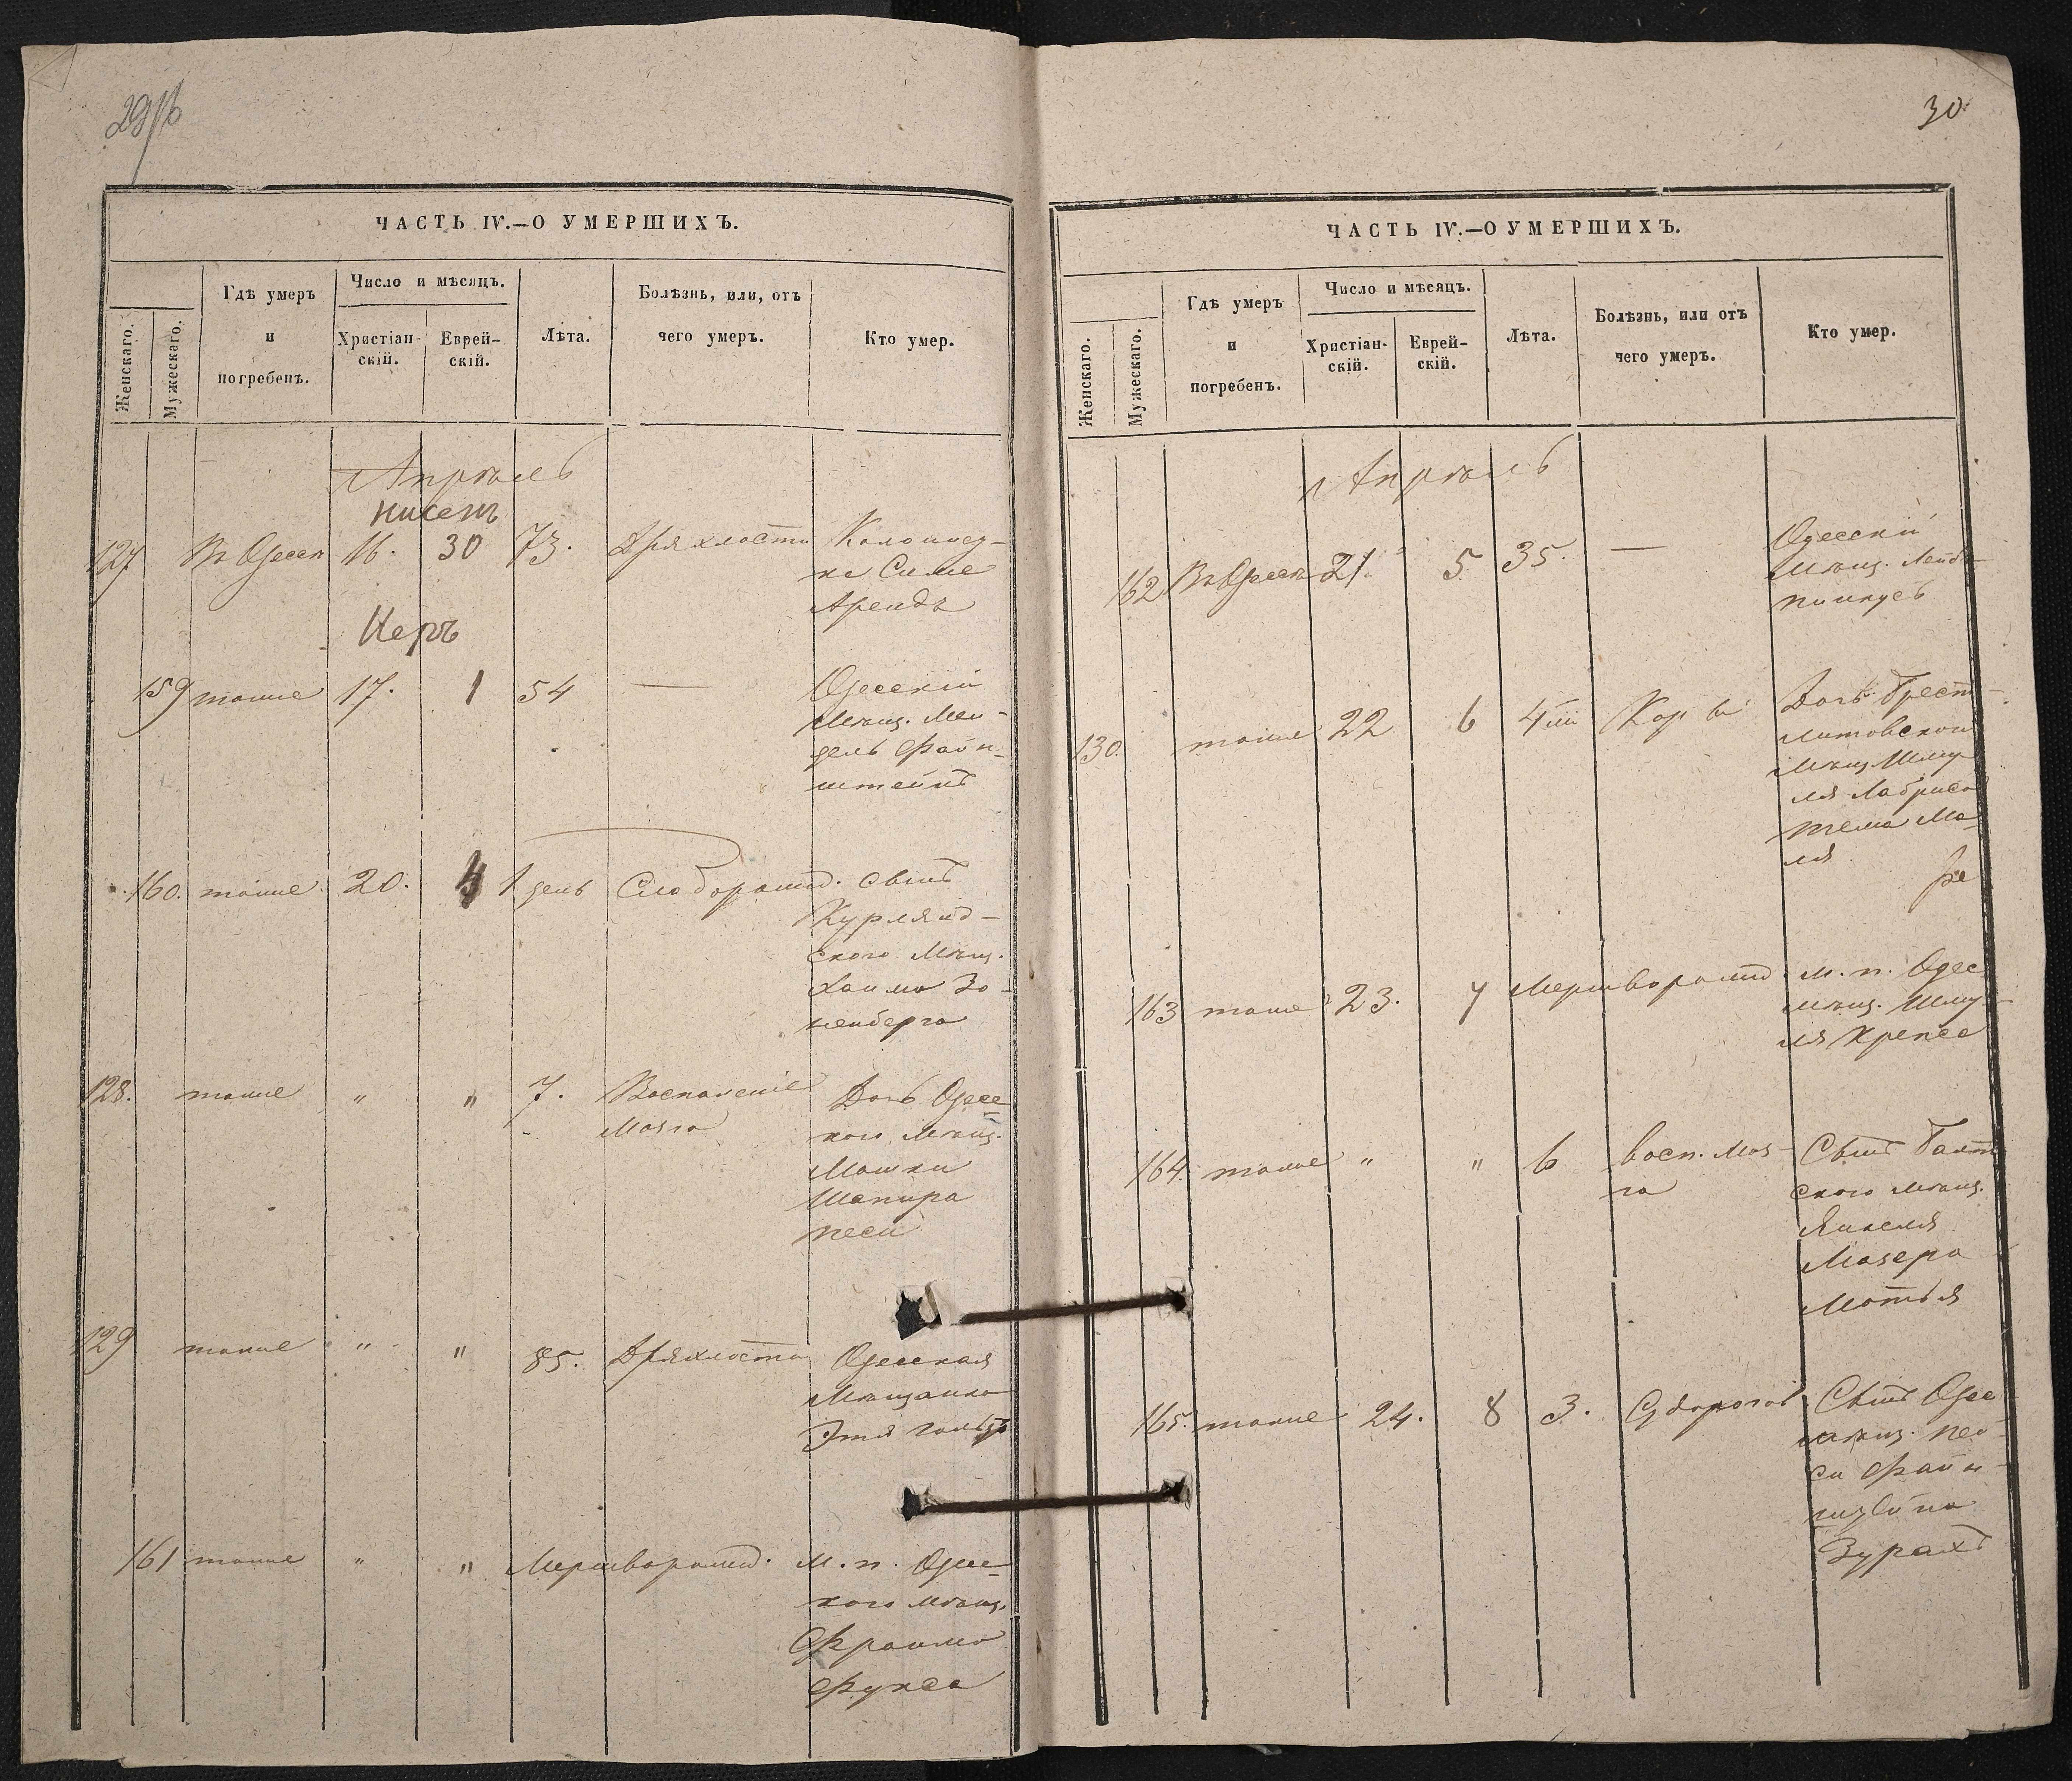 29
ЧАСТЬ IV.—О УМЕРШИХЪ.
Женскаго.
Мужескаго.
Гдѣ умеръ
и
погребенъ.
Число и мѣсяцъ.
Христіан-
скій.
Еврей-
скій.
Лѣта.
Болѣзнь, или, отъ
чего умеръ.
Кто умер.
Апрѣль
Нисенъ
127 Въ Одессѣ 16. 30 73. Дряхлости
Сима
Арендъ
Иеръ
159 тоше 17. 1 54 — Одесскій
Мѣщ. Мен-
дель Файн-
штейнъ
160. тоше 20. 1 день Слаборожд. Сынъ
Курлянд-
ского Мѣщ.
Хаима Зо-
ненберга
128. тоше " " 7. Воспаленіе Дочь Одес-
Мозга кого Мѣщ.
Мошки
Шапира
Песи
129 тоше " " 85. Дряхлости Одесская
Мѣщанка
Этя
161 тоше " " Мертворожд. М. п. Одес-
кого мѣщ.
Фраима
Фукса
30
ЧАСТЬ IV.—О УМЕРШИХЪ.
Женскаго.
Мужескаго.
Гдѣ умеръ
и
погребенъ.
Число и мѣсяцъ.
Христіан-
скій.
Еврей-
скій.
Лѣта.
Болѣзнь, или отъ
чего умеръ.
Кто умер.
Апрѣль
162 Въ Одессѣ 21. 5 35. — Одесскій
Мѣщ. Лейб-
Пинкусъ
130. тоше 22 6 4 Корь Дочь Брест-
литовского
Мѣщ. Шму-
ля
Ма-
ля
163 тоше 23. 7 Мертворожд. м. п. Одес
мѣщ. Шму-
ля Крепса
164. тоше " " 6 Восп. моз- Сынъ
га ского мѣщ.
Янкеля
Мазера
Мотья
165. тоше 24. 8 3. Судорогов Сынъ Одес
мѣщ. Пей-
си Файн-
Зурахъ